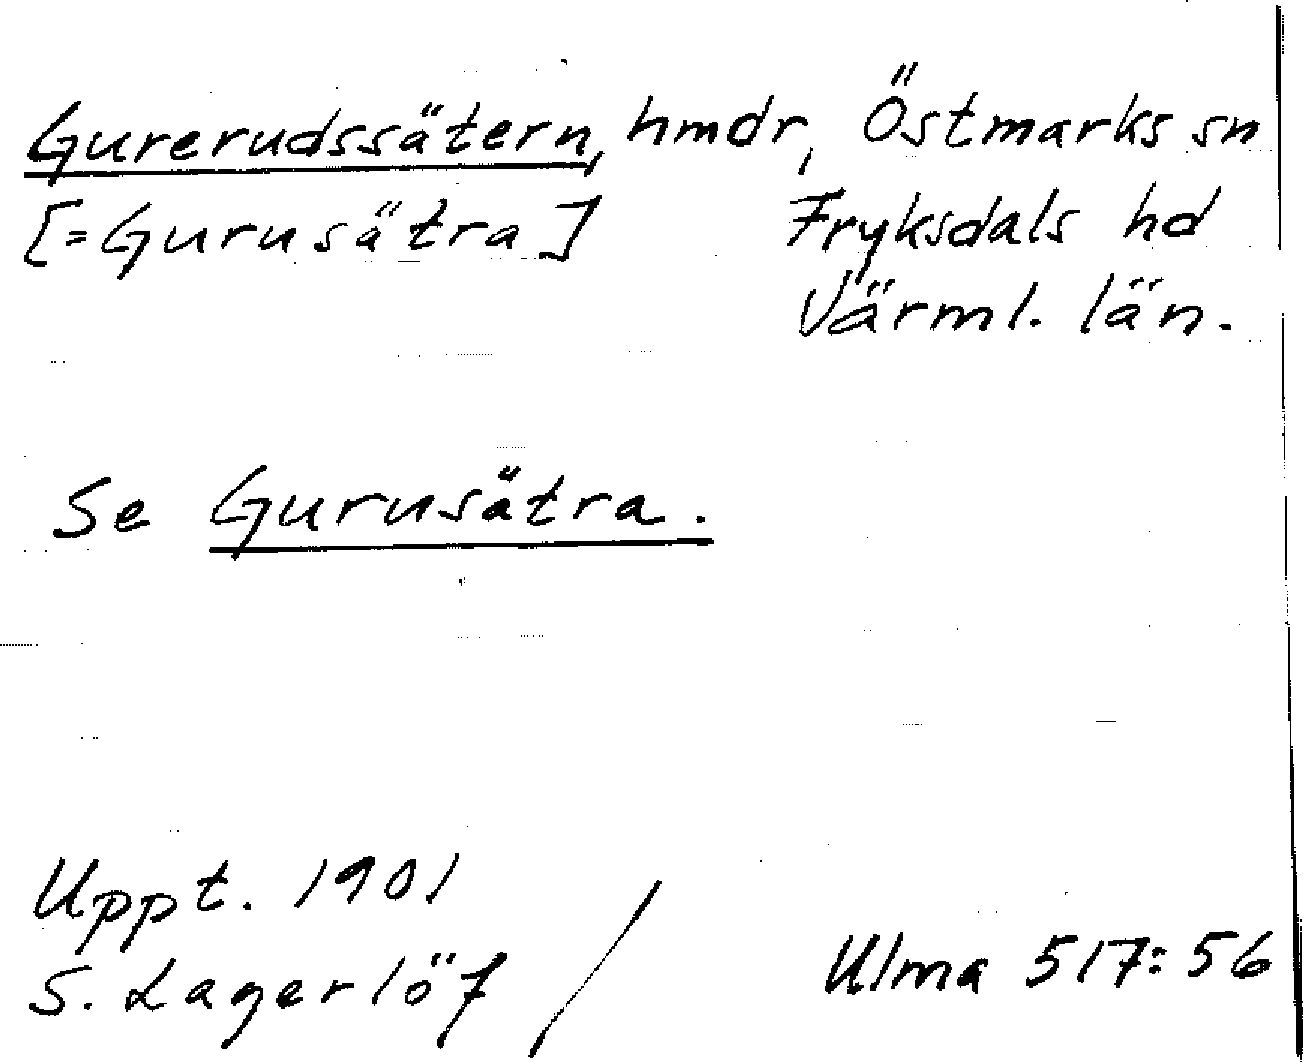 Gurerudssätern, hmdr, Östmarks sn
[=Gurusätra] Fryksdals hd
Värml. län.
Se Gurusätra.
Uppt. 1901
S. Lagerlöf / Ulma 517:56